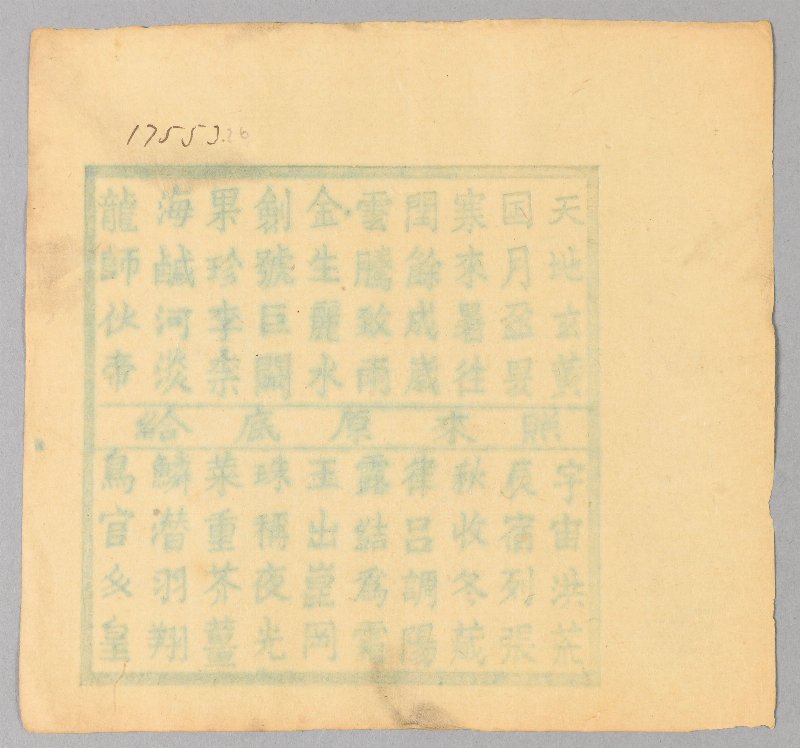 17553.26
天地玄黃
囸月盈昃
寒來暑往
閏餘成歲
雲騰致雨
金生麗水
劍號巨闕
果珍李柰
海鹹河淡
龍師伙帝
照來原底給
宇宙洪荒
辰宿列張
秋收冬藏
律呂調陽
露結為霜
玉出崑岡
珠稱夜光
菜重芥薑
鱗潛羽翔
鳥官皇